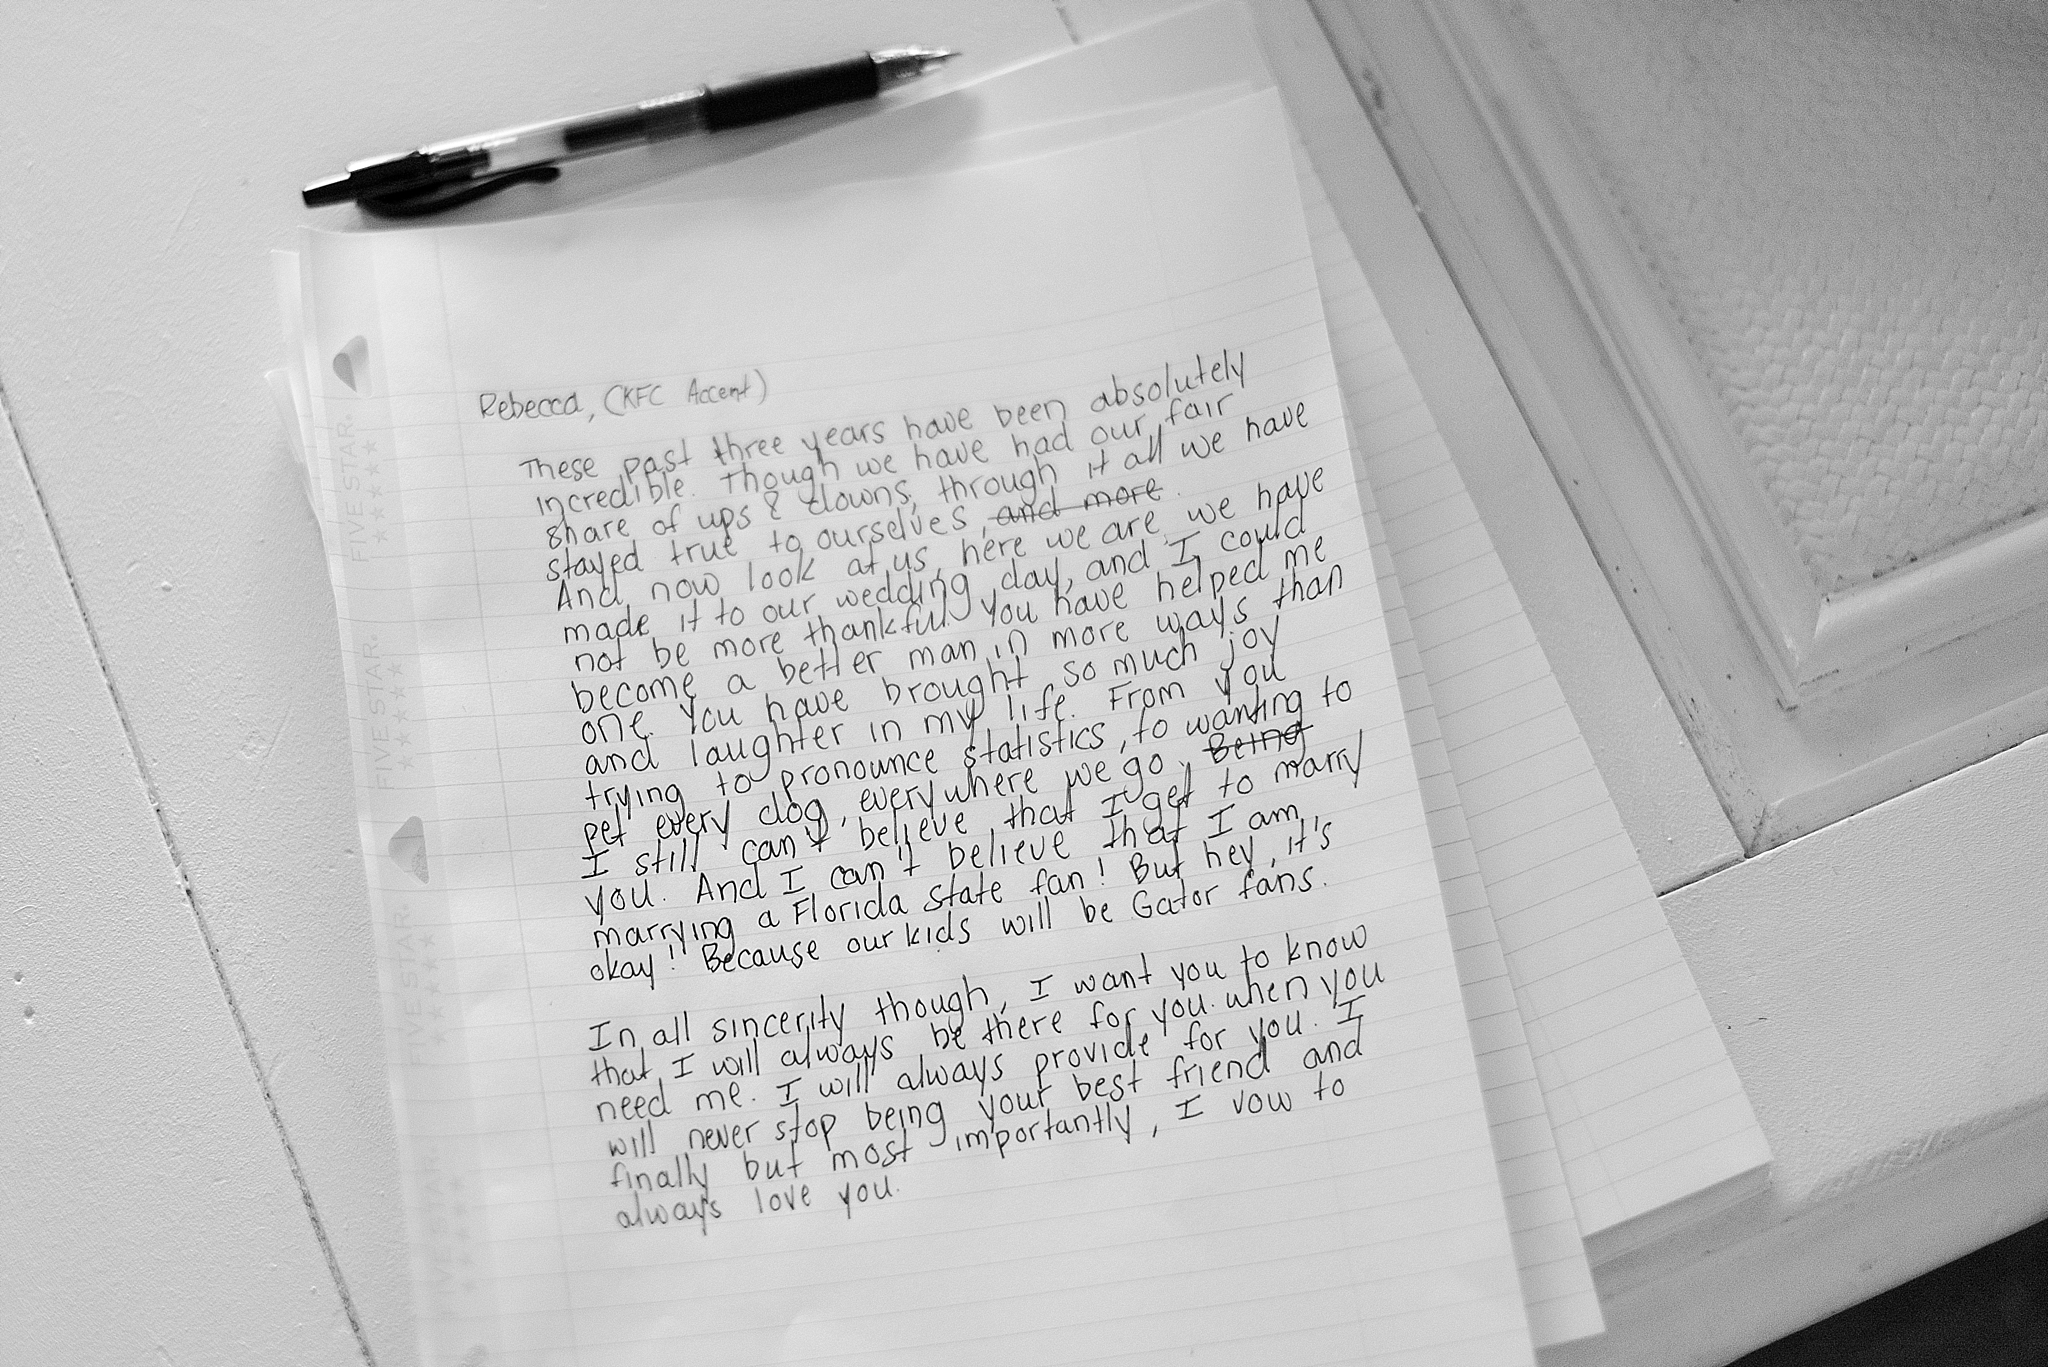 Rebecca, (KFC Accent)
These past three years have been absolutely
incredible. Though we have had our fair
share of ups & downs, through it all we have
stayed true to ourselves, and more.
And now look at us, here we are, we have
made it to our wedding day, and I could
not be more thankful. You have helped me
become a better man in more ways than
one. You have brought so much joy
and laughter in my life. From you
trying to pronounce statistics, to wanting to
pet every dog, everywhere we go. Being
I still can't believe that I get to marry
you. And I can't believe that I am,
marrying a Florida state fan! But hey, it's
okay!! Because our kids will be Gator fans.
In all sincerity though, I want you to know
that I will always be there for you. when you
need me. I will always provide for you. I
will never stop being your best friend and
finally but most importantly, I vow to
always love you.
FIVE STAR.
FIVE STAR.
FIVE STAR.
FIVE STAR.